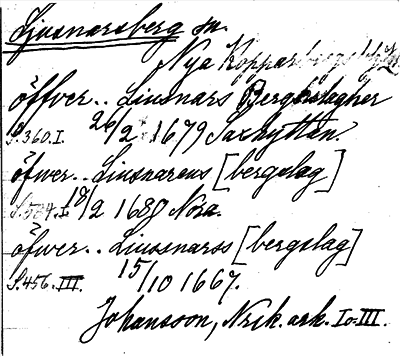 Ljusnarsberg sn.
Nya Kopparbergs
öffver.. Liusnars Bergslagher
S. 360. I. 26/2 1679 Saxhyttan.
öfwer.. Liusnareus [bergslag]
18/2 1680 Nora.
öfwer.. Liussnarss [bergslag]
S. 456. III. 15/10 1667.
Johansson, Nrik. ark. I o. III.